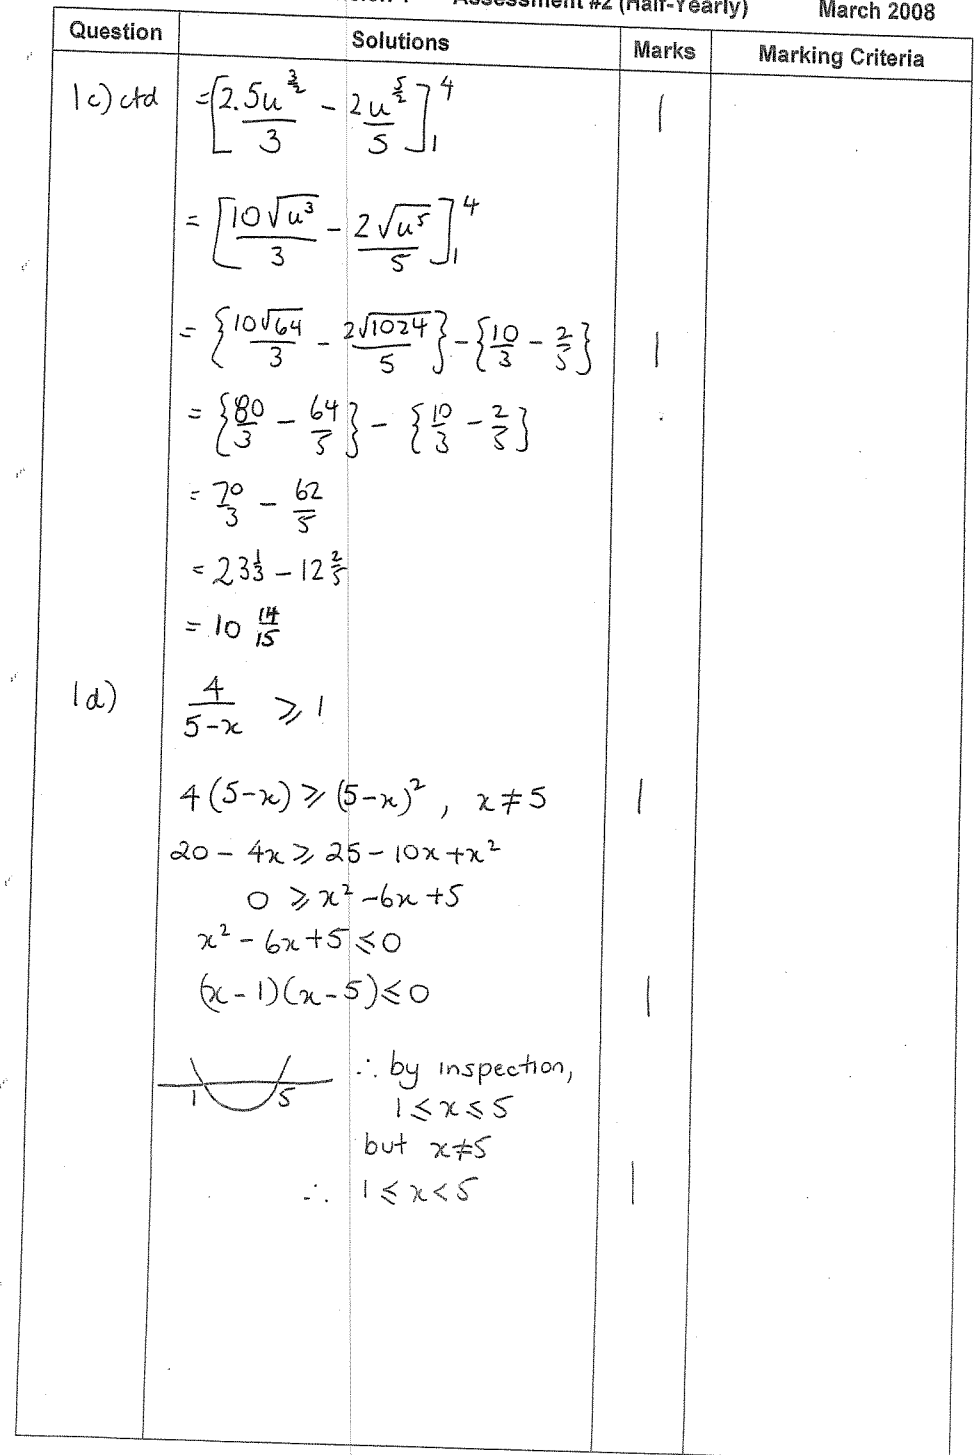 Assessment #2 (Half-Yearly) March 2008
Question Solutions Marks Marking Criteria
1c) ctd = [2.5u^(3/2)/3 - 2u^(5/2)/5]_1^4 1
= [10√u³/3 - 2√u⁵/5]_1^4
= {10√64/3 - 2√1024/5} - {10/3 - 2/5} 1
= {80/3 - 64/5} - {10/3 - 2/5}
= 70/3 - 62/5
= 23 1/3 - 12 2/5
= 10 14/15
1d) 4/(5-x) ⩾ 1
4(5-x) ⩾ (5-x)², x ≠ 5 1
20 - 4x ⩾ 25 - 10x + x²
0 ⩾ x² - 6x + 5
x² - 6x + 5 ⩽ 0
(x - 1)(x - 5) ⩽ 0 1
1 5 ∴ by inspection,
1 ⩽ x ⩽ 5
but x ≠ 5
∴ 1 ⩽ x < 5 1